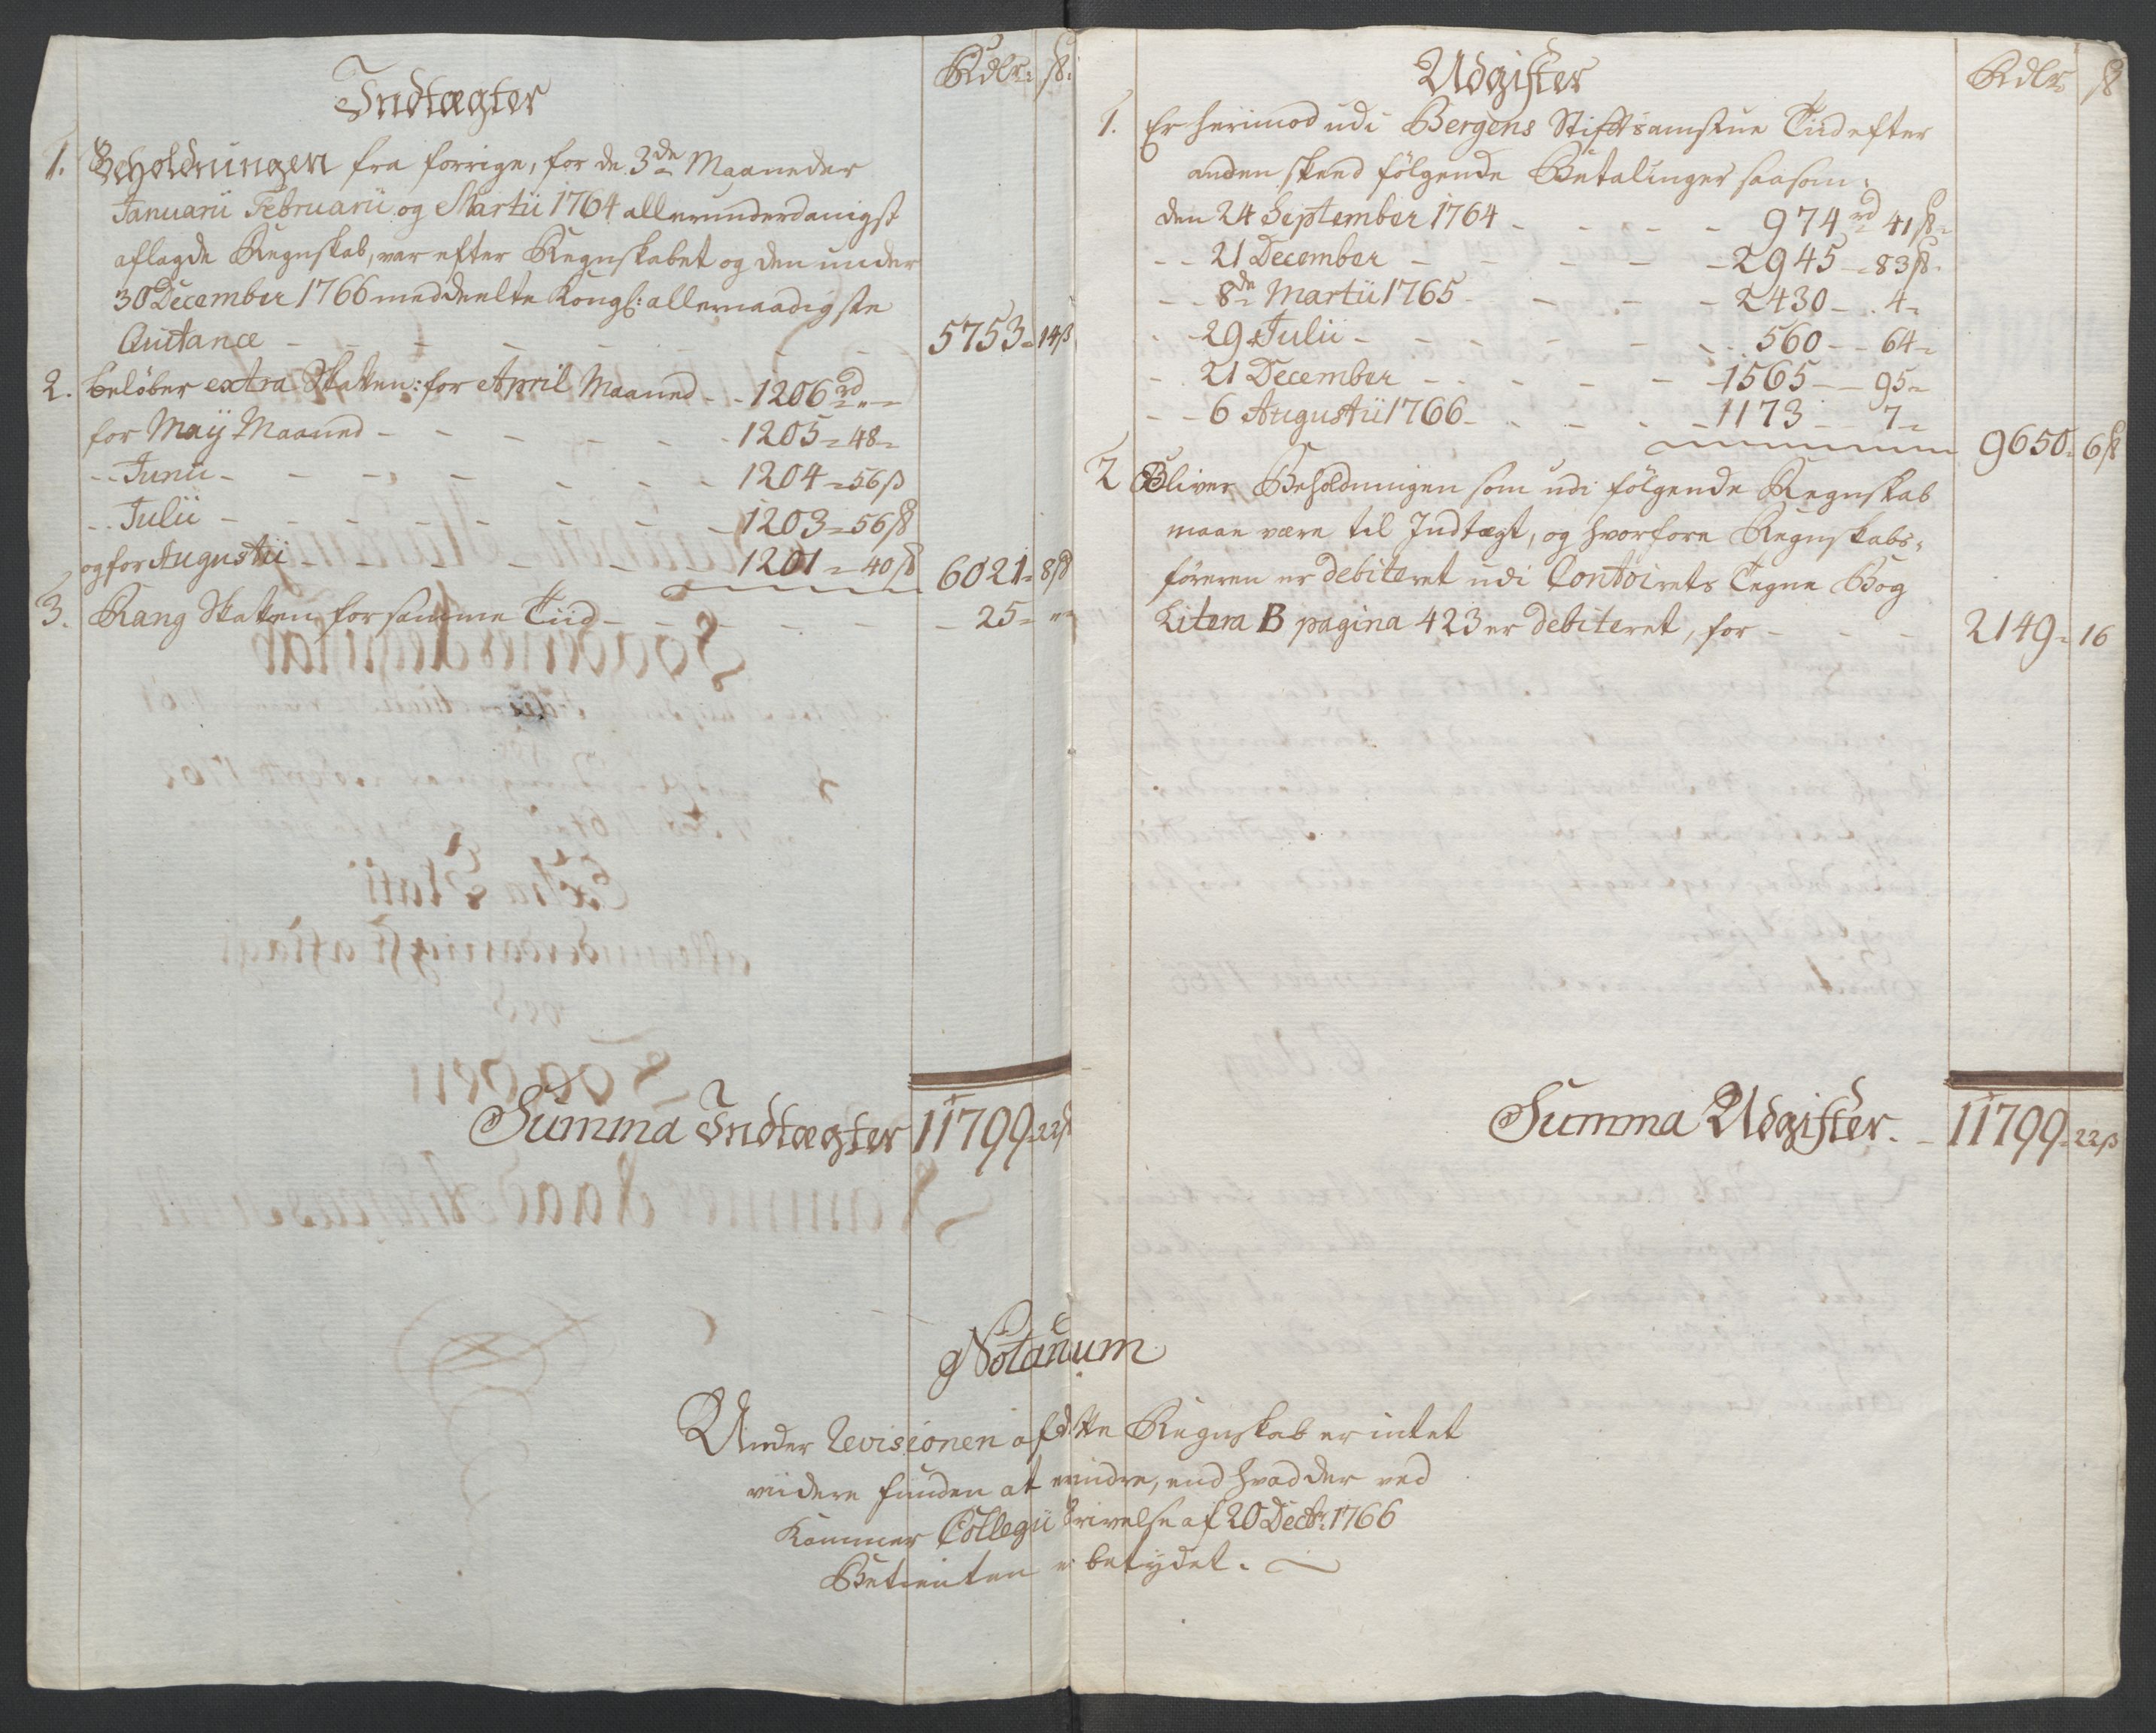 Indtægter
Rdlr: ß:
1. Beholdningen fra forrige, for de 3de Maaneder
Januarii Februarii og Martii 1764 allerunderdanigst
aflagde Regnskab, var efter Regnskabet og den under
30 December 1766 meddeelte Kongl: allernaadigste
Quitance - - - - - - 5753 = 14ß
2. beløber extra Skatten: for April Maaned - - 1206 rd "
for May Maaned - - - - - - 1205 = 48 =
- - Junii - - - - - - 1204 = 56ß
- - Julii - - - - - - 1203 = 56ß
og for Augustii - - - - - 1201 = 40ß 6021 = 8ß
3. Rang Skatten for samme Tiid - - - - - - 25 = "
Summa Indtægter 11799 = 22ß
Udgifter
Rdlr ß
1. Er herimod udi Bergens Stiftsamstue Tiid efter
anden skeed følgende Betalinger saasom:
den 24 September 1764 - - - - 974 rd 41ß =
- - 21 December - - - - - 2945 = 83ß
- - 8de Martii 1765 - - - - 2430 - 4 =
- - 29 Julii - - - - - - 560 - - 64 =
- - 21 December - - - - - 1565 - - 95 =
- - 6 Augustii 1766 - - - - 1173 - 7 =
9650 = 6ß
2 Bliver Beholdningen som udi følgende Regnskab
maae være til Indtægt, og hvorfore Regnskabs-
føreren er debiteret udi Contoirets Tegne Bog
Litera B pagina 423 er debiteret, for - - - 2149 = 16
Summa Udgifter. - 11799 = 22ß
Notanum
Under Revisionen af dette Regnskab er intet
viidere funden at erindre, end hvad der ved
Kammer Collegii Skrivelse af 20 Decbr: 1766
Betienten er betydet.